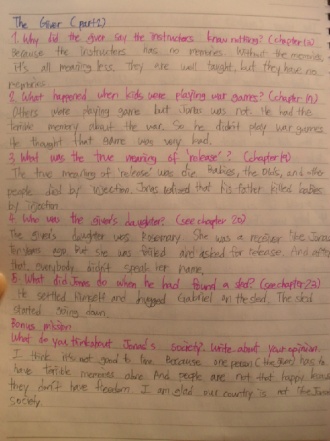 The Giver (part 2)
1. Why did the giver say the instructors know nothing? (chapter 13)
Because the instructors has no memories. Without the memories,
it's all meaning less. They are well taught, but they have no
memories.
2. What happened when kids were playing war games? (chapter 17)
Others were playing game but Jonas was not. He had the
terrible memory about the war. So he didn't play war games.
He thought that game was very bad.
3. What was the true meaning of 'release'? (chapter 19)
The true meaning of 'release' was die. Babies, the Olds, and other
people died by injection. Jonas that his father killed babies
by injection.
4. Who was the giver's daughter? (see chapter 20)
The giver's daughter was Rosemary. She was a receiver like Jonas
ago. But she was failed and asked for release. And after
that, everybody didn't speak her name.
5. What did Jonas do when he had found a sled? (see chapter 23)
He settled himself and hugged Gabriel on the sled. The sled
started going down.
Bonus mission
What do you think about Jonas's society? Write about your opinion.
I think it's not good to live. Because one person (the giver) has to
have terrible memories alone. And people are not that happy because
they don't have freedom. I am glad our country is not like Jonas'
society.